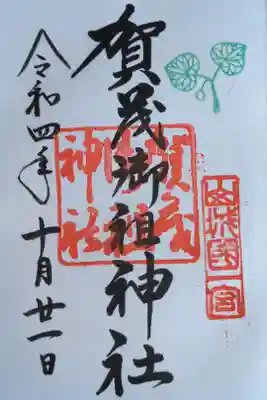 山城國一宮
賀茂御祖神社
賀茂御祖神社
令和四年十月廿一日